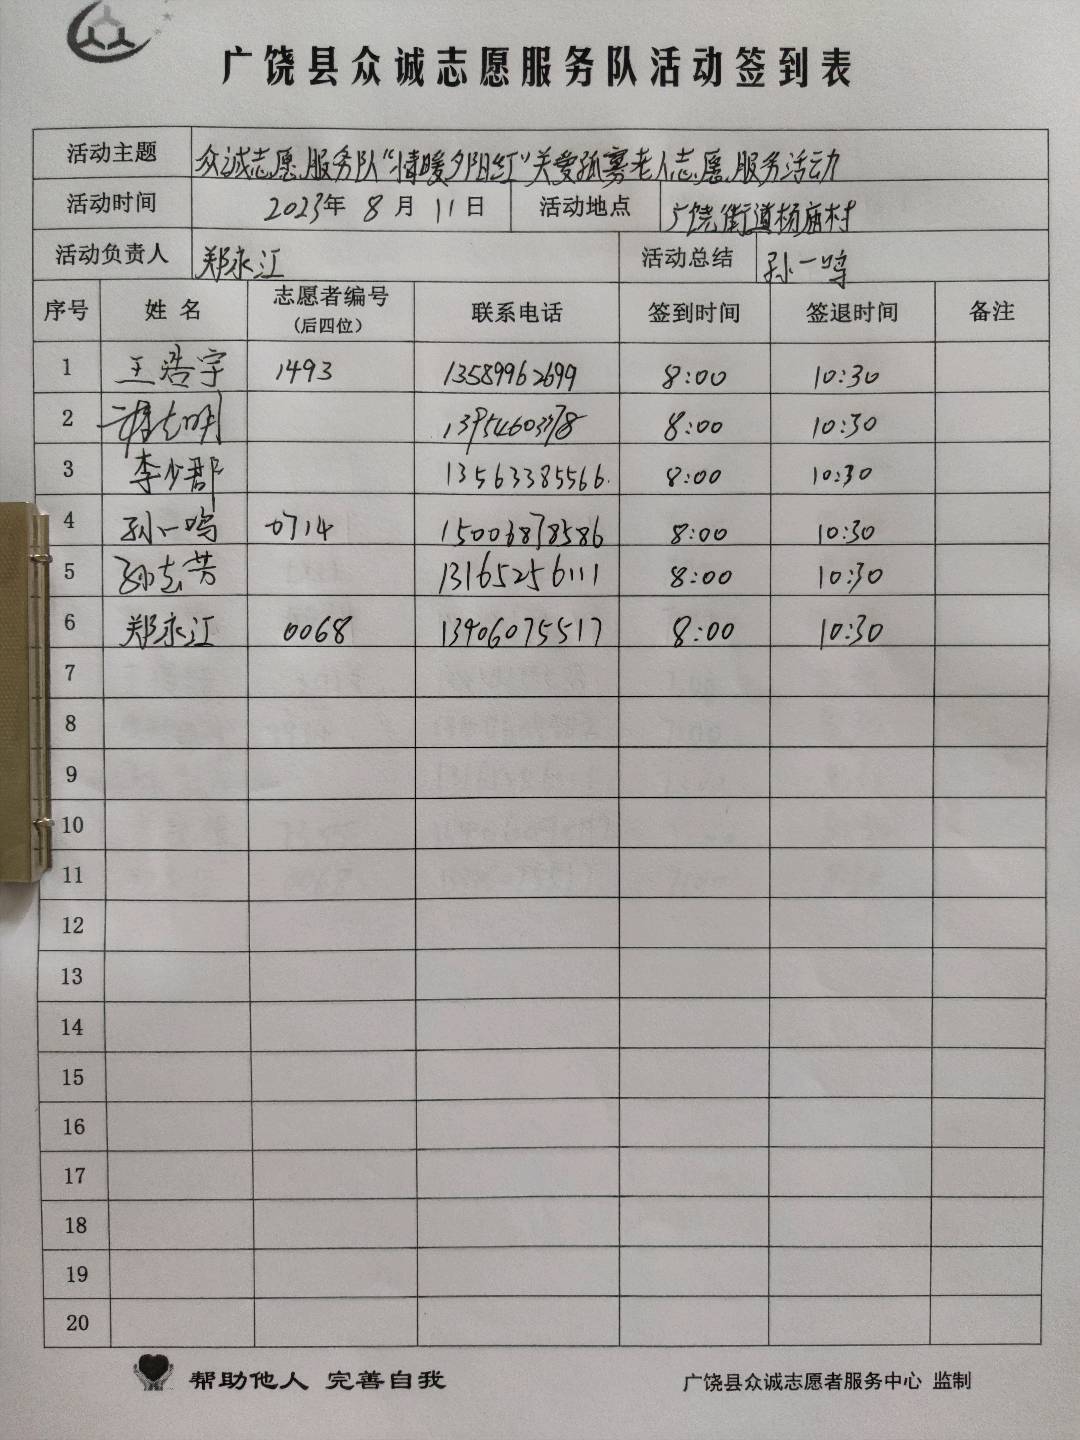 广饶县众诚志愿服务队活动签到表
活动主题 众诚志愿服务队“情暖夕阳红”关爱孤寡老人志愿服务活动
活动时间 2023年 8月 11日 活动地点 广饶街道杨庙村
活动负责人 郑永江 活动总结 孙一鸣
序号 姓名 志愿者编号（后四位） 联系电话 签到时间 签退时间 备注
1 王浩宇 1493 13589962699 8:00 10:30
2 志明 8:00 10:30
3 李少郡 13563385566 8:00 10:30
4 孙一鸣 0714 15006878586 8:00 10:30
5 孙志芳 13165256111 8:00 10:30
6 郑永江 0068 13406075517 8:00 10:30
7
8
9
10
11
12
13
14
15
16
17
18
19
20
帮助他人 完善自我
广饶县众诚志愿者服务中心 监制